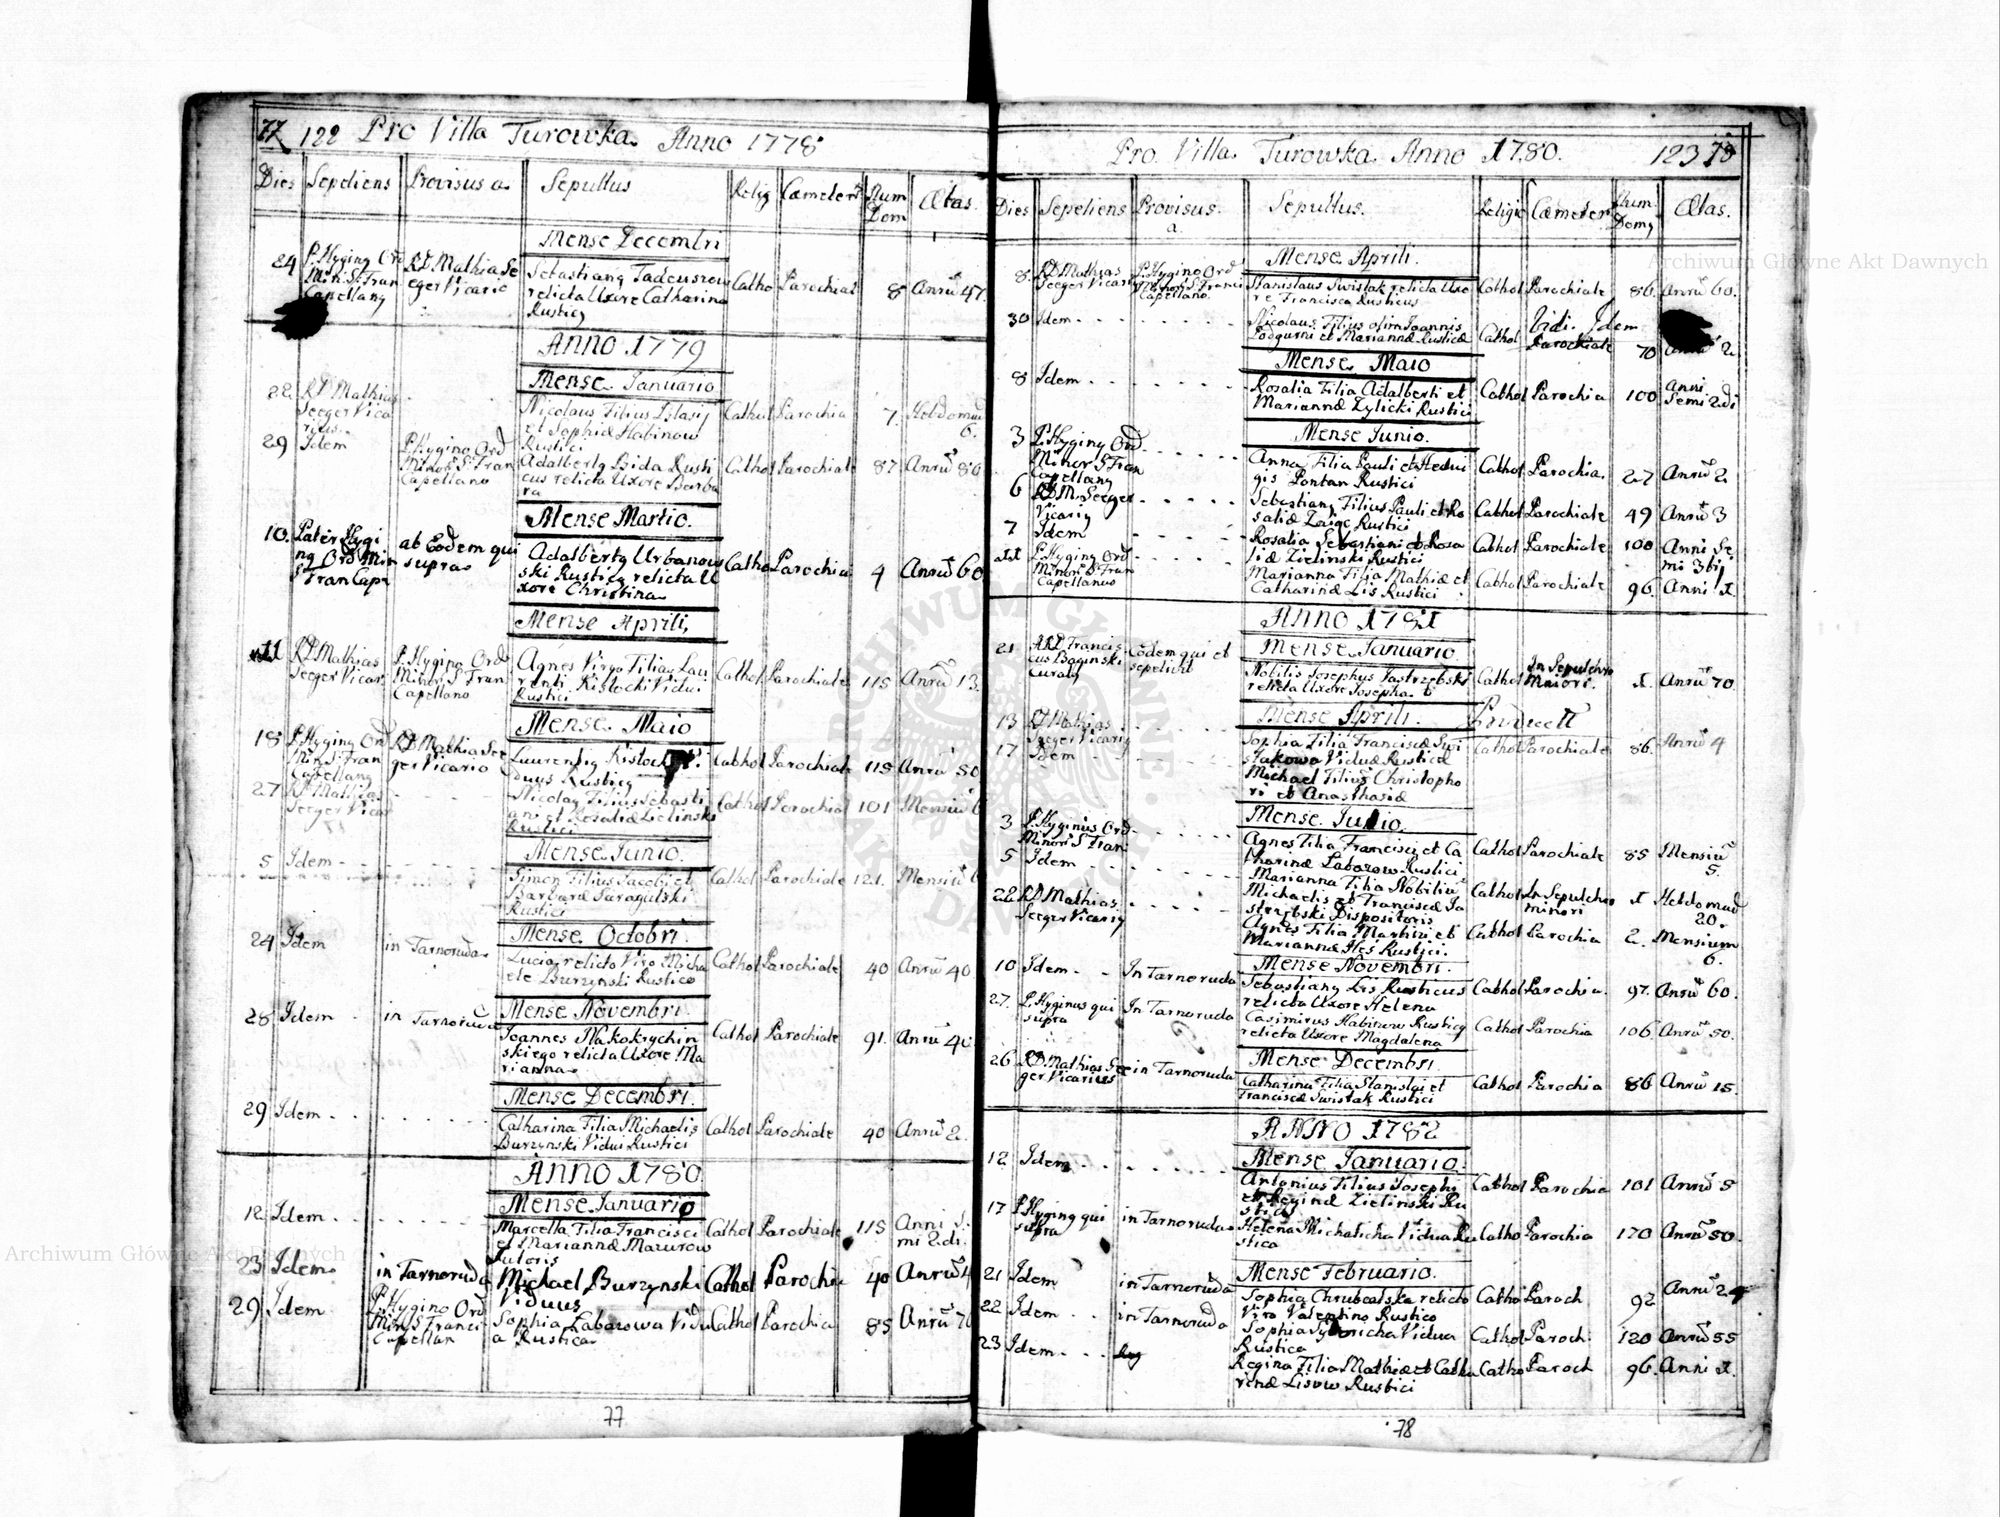 77 122 Pro Villa Turowka Anno 1778
Dies Sepeliens Provisus a Sepultus Relig Cæmeter Num Dom Ætas.
Mense Decembri
24 P. Hyging Ord Min: S. Fran Capellang
RD Mathia Seeger Vicario
Sebastiang Tadeuszow
relicta Uxore Catharina
Rusticg
Catho Parochial 8 Anrũ 47.
ANNO 1779
Mense Januario
22 RD Mathias
Seeger Vica
rius.
Nicolaus Filius
et Sophiæ Habinow
Rustici
Cathol Parochia 7. Hebdomad
6.
29 Idem
P. Hygino Ord
Minor S. Fran
Capellano
Adalbertg Bida Rusti
cus relicta Uxore Barba
ra
Cathol Parochiale 87 Anrũ 80
Mense Martio.
10. Pater Hygi
ng Ord Min
S Fran Capn
ab Eodem qui
supra
Adalbertg Urbanow
ski Rusticg relicta U
xore Christina
Catho Parochia 4 Anrũ 60
Mense Aprili,
11 RD Mathias
Seeger Vicar.
P. Hygino Ord
Minor S. Fran
Capellano
Agnes Virgo Filia Lau
renti Kistocki Vidui
Rustici
Cathol Parochiale 115 Anrũ 13
Mense Maio
18 P. Hyging Ord
Min S. Fran
Capellang
RD Mathia See
ger Vicario
Laurentig Kistocki Vi
duus Rusticg
Cathol Parochiale 115 Anrũ 50
27 RD Mathias
Seeger Vica
Nicolag Filius Sebasti
ani et Rosaliæ Zielinski
Rustici
Cathol Parochial 101 Mensiũ 6
Mense Junio.
5 Idem
Simon Filius Jacobi et
Barbaræ Saragulski
Rustici
Cathol Parochiale 121. Mensiũ 6
Mense Octobri.
24 Idem in Tarnoruda
Lucia relicto Viro Micha
ele Burzynski Rustico
Cathol Parochiale 40 Anrũ 40
Mense Novembri
28 Idem in Tarnoruda
Joannes Nakokrychin
skiego relicta Uxore Ma
rianna
Cathol Parochiale 91. Anrũ 40
Mense Decembri.
29 Idem
Catharina Filia Michaelis
Burzynski Vidui Rustici
Cathol Parochiale 40 Anrũ 2.
ANNO 1780
Mense Januario
12 Idem
Marcella Filia Francisci
et Mariannæ Mazurow
Cathol Parochiale 115 Anni S.
mi 2di.
23 Idem in Tarnoruda
Michael Burzynski
Viduus
Cathol Parochia 40 Anrũ 4
29 Idem
P. Hygino Ord
Min S Franci
Capellan
Sophia Labazowa Vidu
a Rustica
Cathol Parochia 85 Anrũ 70
77
Pro Villa Turowka Anno 1780. 123 78
Dies Sepeliens Provisus a Sepultus. Religio Cæmeter Num. Domg Ætas.
Mense Aprili.
8. RD Mathias
Seeger Vicarig
P. Hygino Ord
Minor S. Franci
Capellano.
Stanislaus Swistak relicta Uxo
re Francisca Rusticus
Cathol Parochiale 86. Anrũ 60.
Vidi. Idem
30 Idem
Nicolaus Filius olim Joannis
Podgurni et Mariannæ Rusticæ
Cathol Parochiale 70 Anrũ 2.
Mense Maio
8 Idem
Rosalia Filia Adalberti et
Mariannæ Zylicki Rustici
Cathol Parochia 100 Anni
Semi 2di
Mense Junio.
3 P. Hyging Ord
Minor S Fran
Capellang
Anna Filia Pauli et Hedvi
gis Pontan Rustici
Cathol Parochia. 27 Anrũ 2
6 RD M. Seeger
Vicarig
Sebastiang Filius Pauli et Ro
saliæ Rustici
Cathol Parochiale 49 Anrũ 3
7 Idem
Rosalia Sebastiani et Rosa
liæ Zielinski Rustici
Cathol Parochiale 100 Anni Se
mi 3tij
11 P. Hyging Ord
Minor S Fran
Capellanus
Marianna Filia Mathiæ et
Catharinæ Lis Rustici
Cathol Parochiale 96 Anni 1.
ANNO 1781
Mense Januario
21 ARD Francis
cus Baginski
Curatg
Eodem qui et
sepelivit
Nobilis Josephus Jastrzębski
relicta Uxore Josepha
Cathol In Sepulchro
Maiori. 1. Anrũ 70.
Mense Aprili.
13 RD Mathias
Seeger Vicarig
Sophia Filia Franciscæ Swi
stakowa Viduæ Rusticæ
Cathol Parochiale 86. Anrũ 4
17 Idem
Michael Filius Christopho
ri et Anasthasiæ
Mense Junio.
3 P. Hyginus Ord
Minor S Fran
Agnes Filia Francisci et Ca
tharinæ Labazow Rustici
Cathol Parochiale 85 Mensiũ
5.
5 Idem
Marianna Filia Nobiliũ
Michaelis et Franciscæ Ja
strzębski Dispositoris
Cathol In Sepulchro
minori 1 Hebdomad
20.
22 RD Mathias
Seeger Vicarig
Agnes Filia Martini et
Mariannæ Rustici.
Cathol Parochia 2. Mensium
6.
Mense Novembri.
10 Idem In Tarnoruda
Sebastiang Lis Rusticus
relicta Uxore Helena
Cathol Parochia. 97. Anrũ 60.
27. P. Hyginus qui
supra
In Tarnoruda
Casimirus Habinow Rusticg
relicta Uxore Magdalena
Cathol Parochia 106 Anrũ 50.
Mense Decembri.
26 RD Mathias See
ger Vicarius
in Tarnoruda
Catharina Filia Stanislai et
Franciscæ Swistak Rustici
Cathol Parochia 86 Anrũ 15
ANNO 1782
Mense Januario.
12 Idem
Antonius Filius Josephi
et Reginæ Zielinski Ru
stici
Cathol Parochia 101 Anrũ 5
17 P. Hyging qui
supra
in Tarnoruda
Helena Michalicha Vidua Ru
stica
Catho Parochia 170 Anrũ 50.
Mense Februario.
21 Idem in Tarnoruda
Sophia Chrubcalska relicto
Viro Valentino Rustico
Catho Paroch 92 Anrũ 24
22 Idem in Tarnoruda
Sophia Vidua
Rustica
Cathol Paroch: 120 Anrũ 55
23 Idem
Regina Filia Mathiæ et Catha
rinæ Lisow Rustici
Catho Paroch 96. Anni 1.
78
Archiwum Główne Akt Dawnych
Archiwum Główne Akt Dawnych
ARCHIWUM GŁÓWNE AKT DAWNYCH